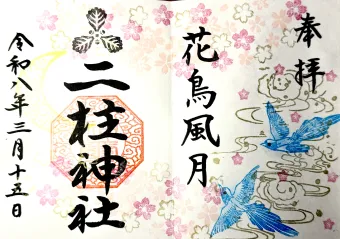 奉拝
花鳥風月
二柱神社
令和八年三月十五日